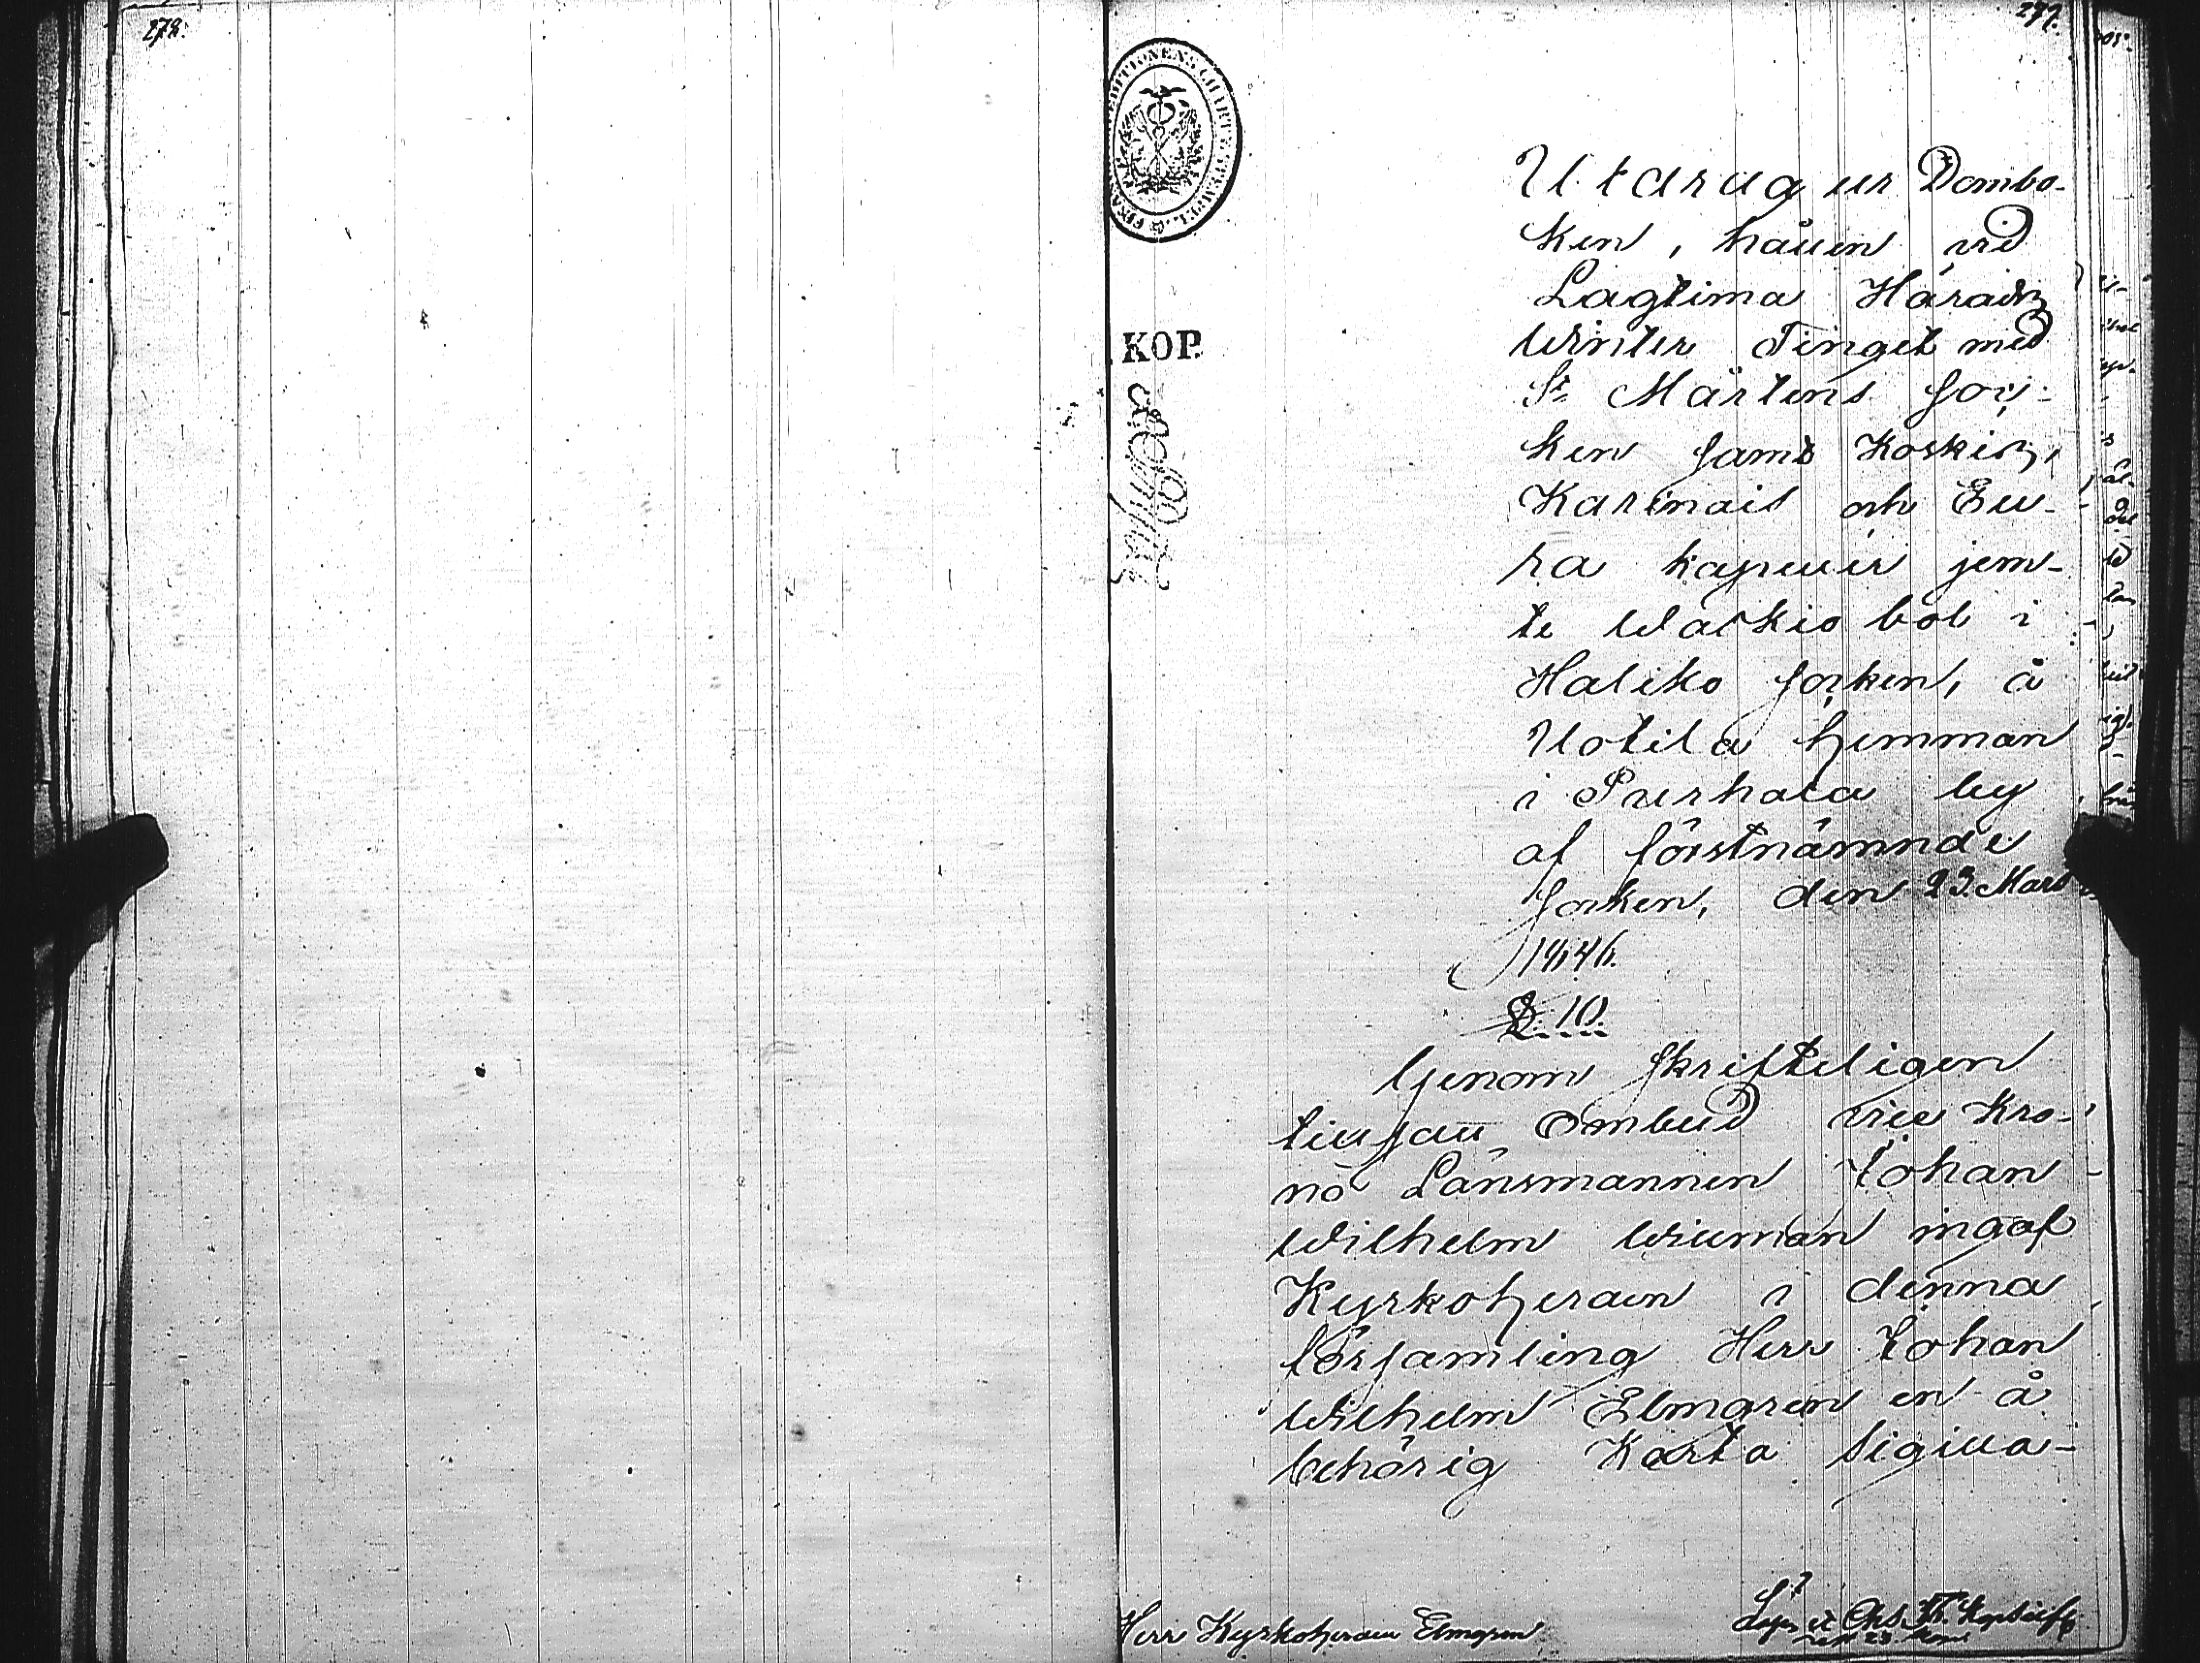 272.
277.
KOP.
Utdrag ur Dombo-
ken, hållen vid
Lagtima Härads
Winter Tinget med
St Mårtens Soc-
ken samt Koskis,
Karinais och Eu-
ra kapeller jem-
te Waskio bol i
Haliko socken, å
Uotila hemman
i Prerhala by
af förstnämnde
Socken, den 23 Mars
1846.
§. 10.
Genom skrifteligen
tillsatt Ombud vice Kro-
no Länsmannen Johan
Wilhelm Widman ingaf
Kyrkoherden i denna
församling Herr Johan
Wilhelm Elmgren en å
behörig Karta sigilla-
Herr Kyrkoherden Elmgren